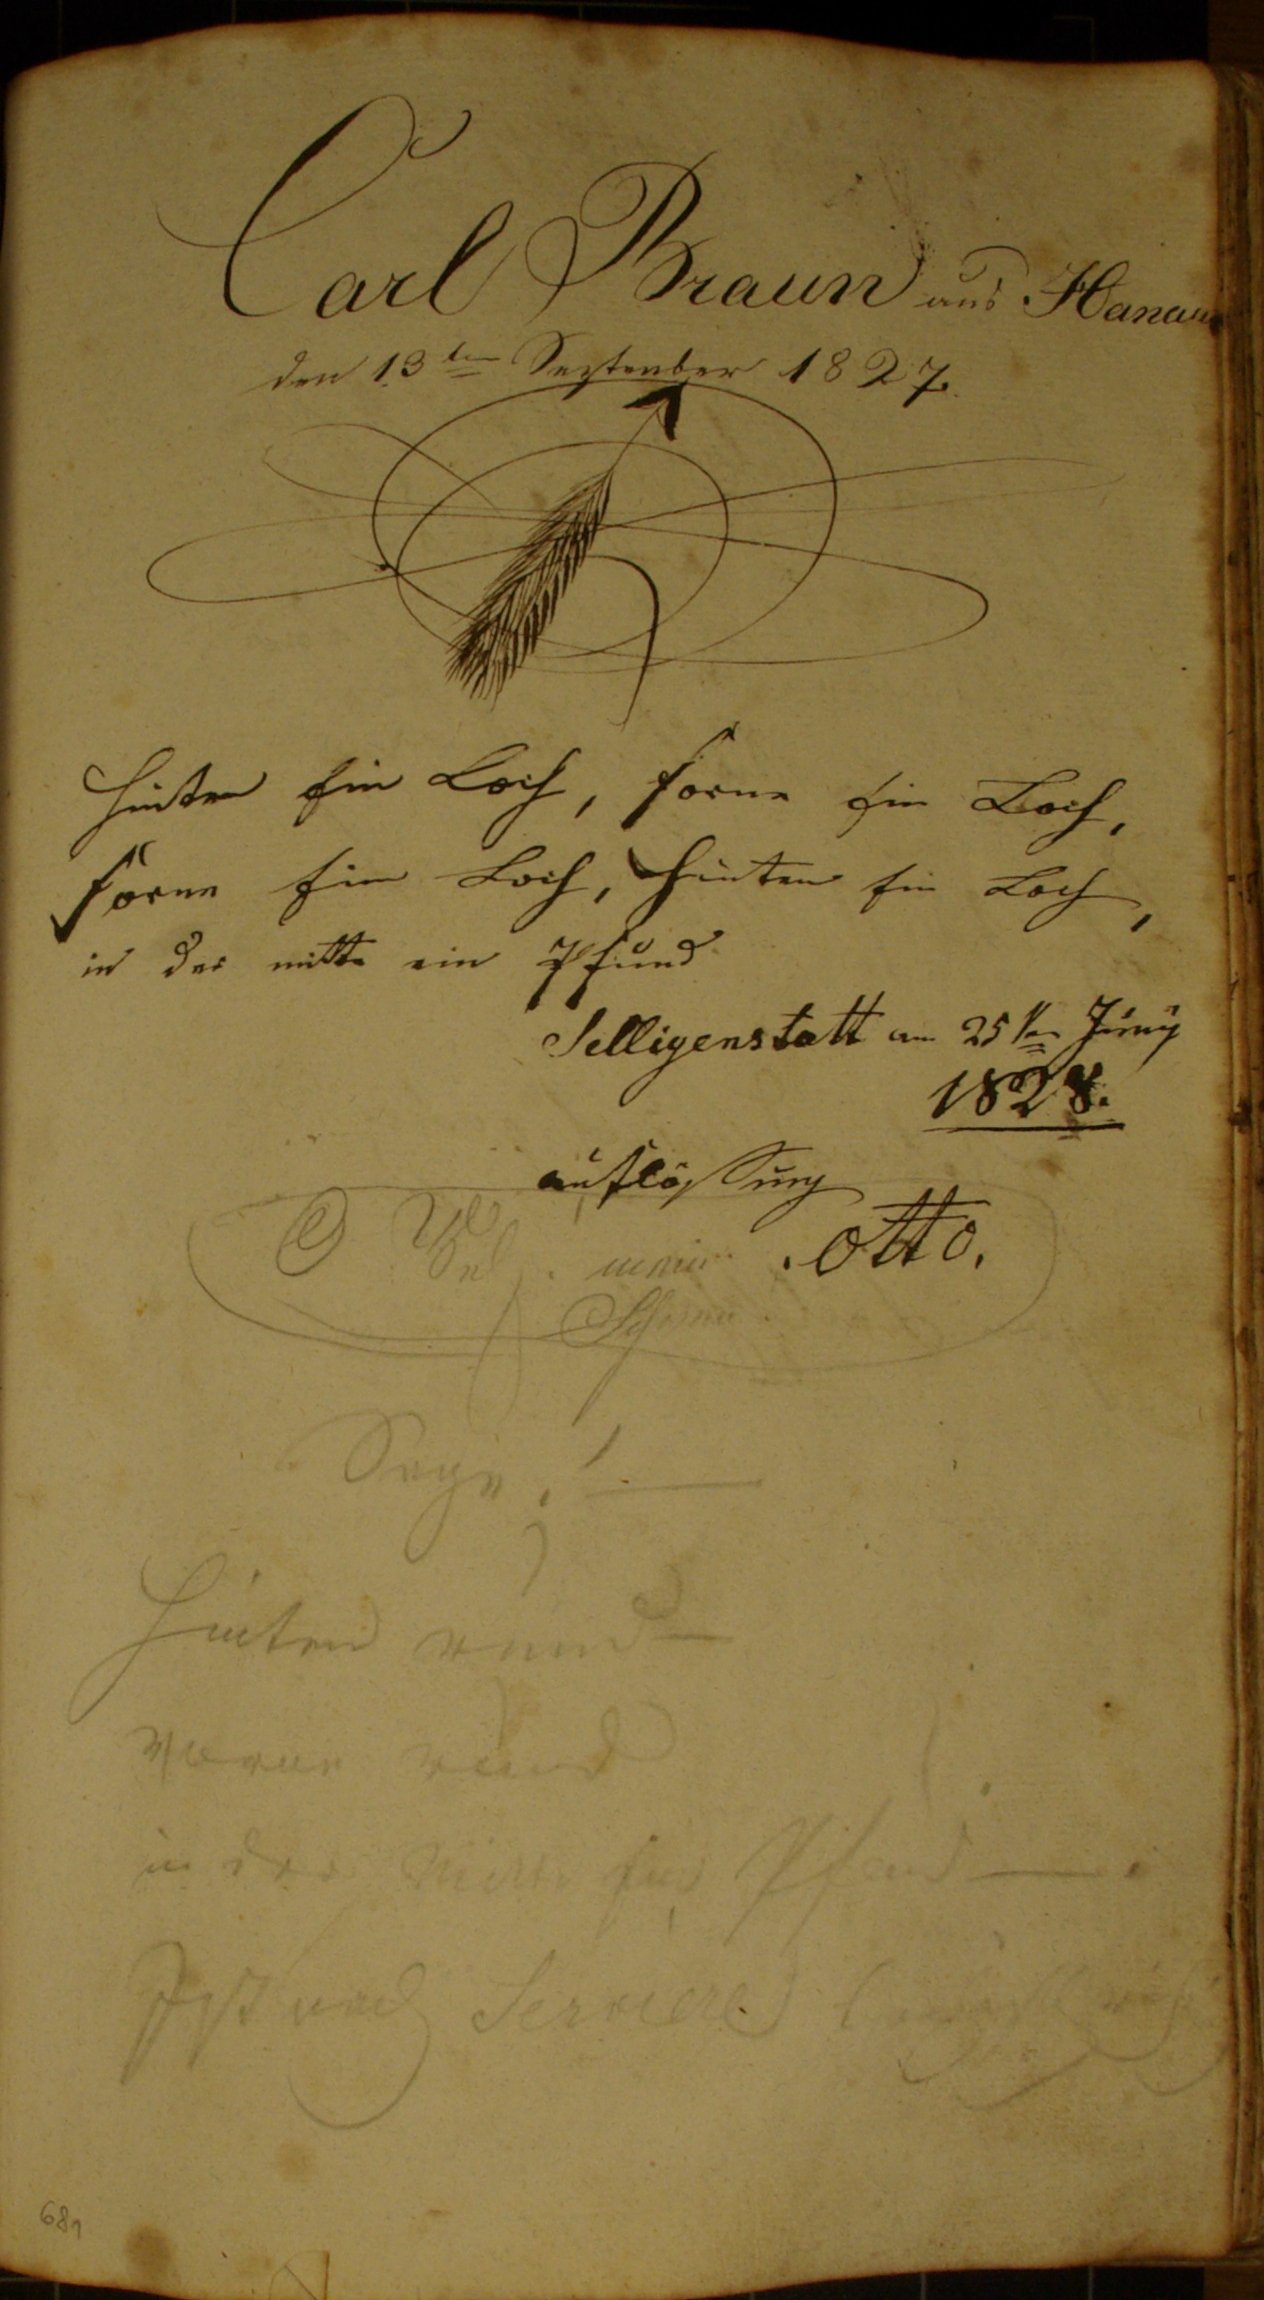 Carl Braun aus Hanau
den 13ten September 1827.
Hinten ein Loch, forne ein Loch,
forne ein Loch, hinten ein Loch,
in der mitte ein Pfund
Selligenstatt am 25ten Juny
1828.
auflößung
. otto.
O mein
Hinten rund
vorne rund
in der Mitte ein Pfund
681